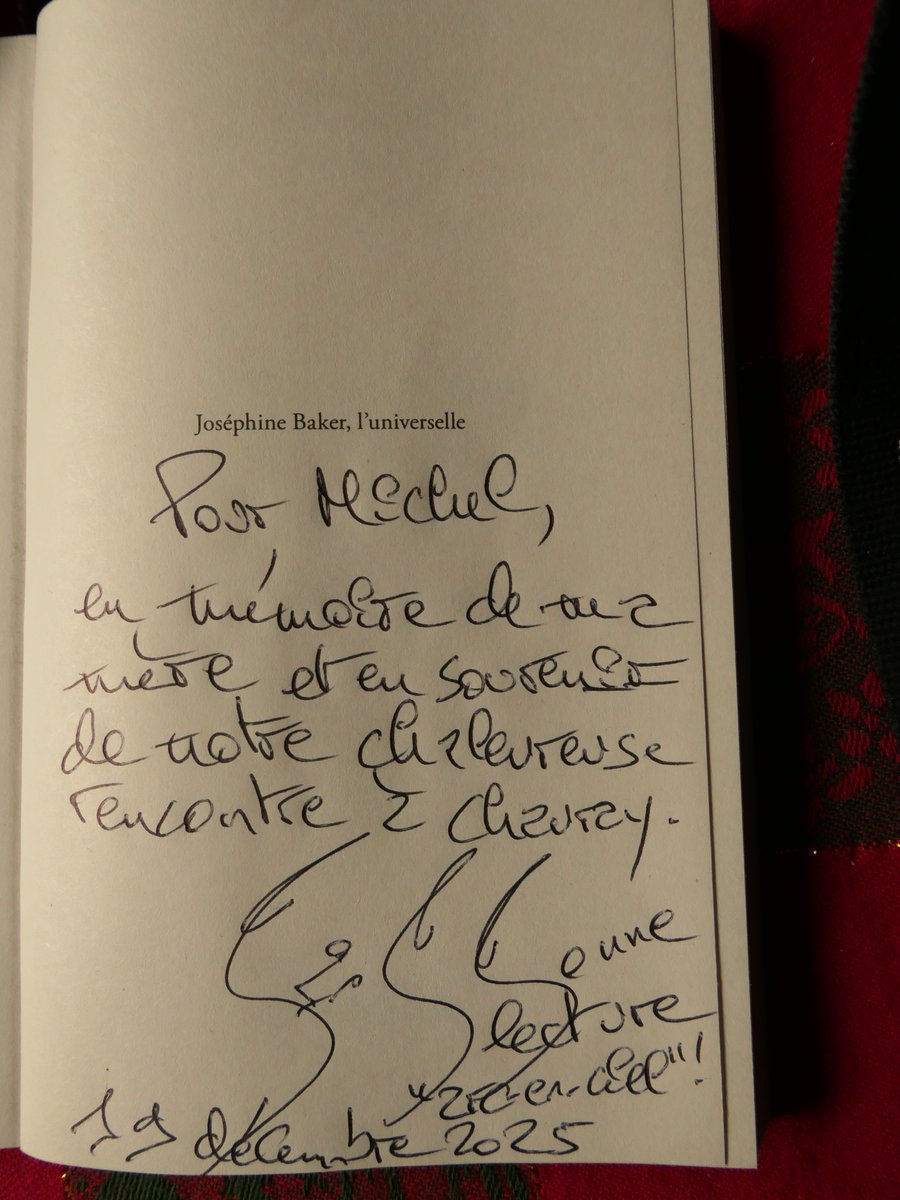 Joséphine Baker, l'universelle
Pour Michel,
en mémoire de ma
mère et en souvenir
de notre chaleureuse
rencontre à Chevry.
Bonne
lecture
"arc-en-ciel"!
19 décembre 2025